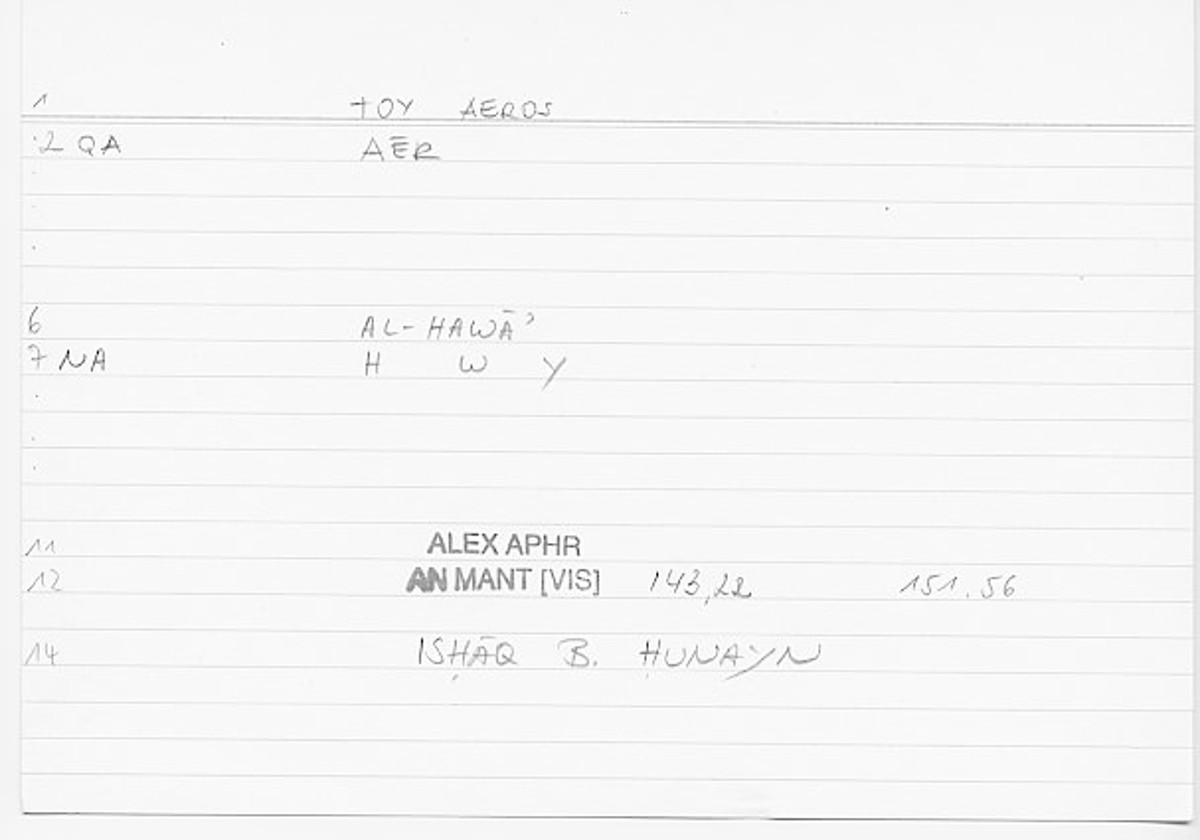 1 TOY AEROS
2 QA AĒR
6 AL-HAWĀʾ
7 NA H W Y
11 ALEX APHR
12 AN MANT [VIS] 143,22 151.56
14 ISḤĀQ B. ḤUNAYN